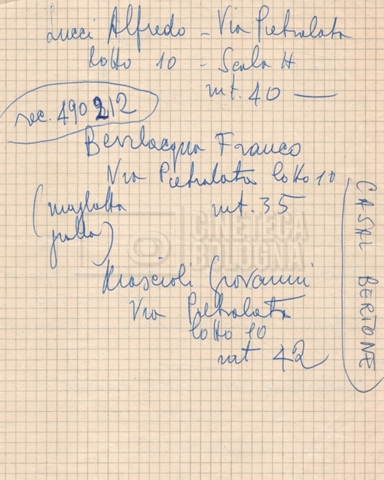 Lucci Alfredo - Via Pietralata
lotto 10 - Scala H
mt. 40 —
rec. 490212
Bevilacqua Franco
Via Pietralata lotto 10
(maglietta mt. 35
gialla)
CINETECA
BOLOGNA
Giovanni
Via Pietralata
lotto 10
mt 42
CASAL BERTONE